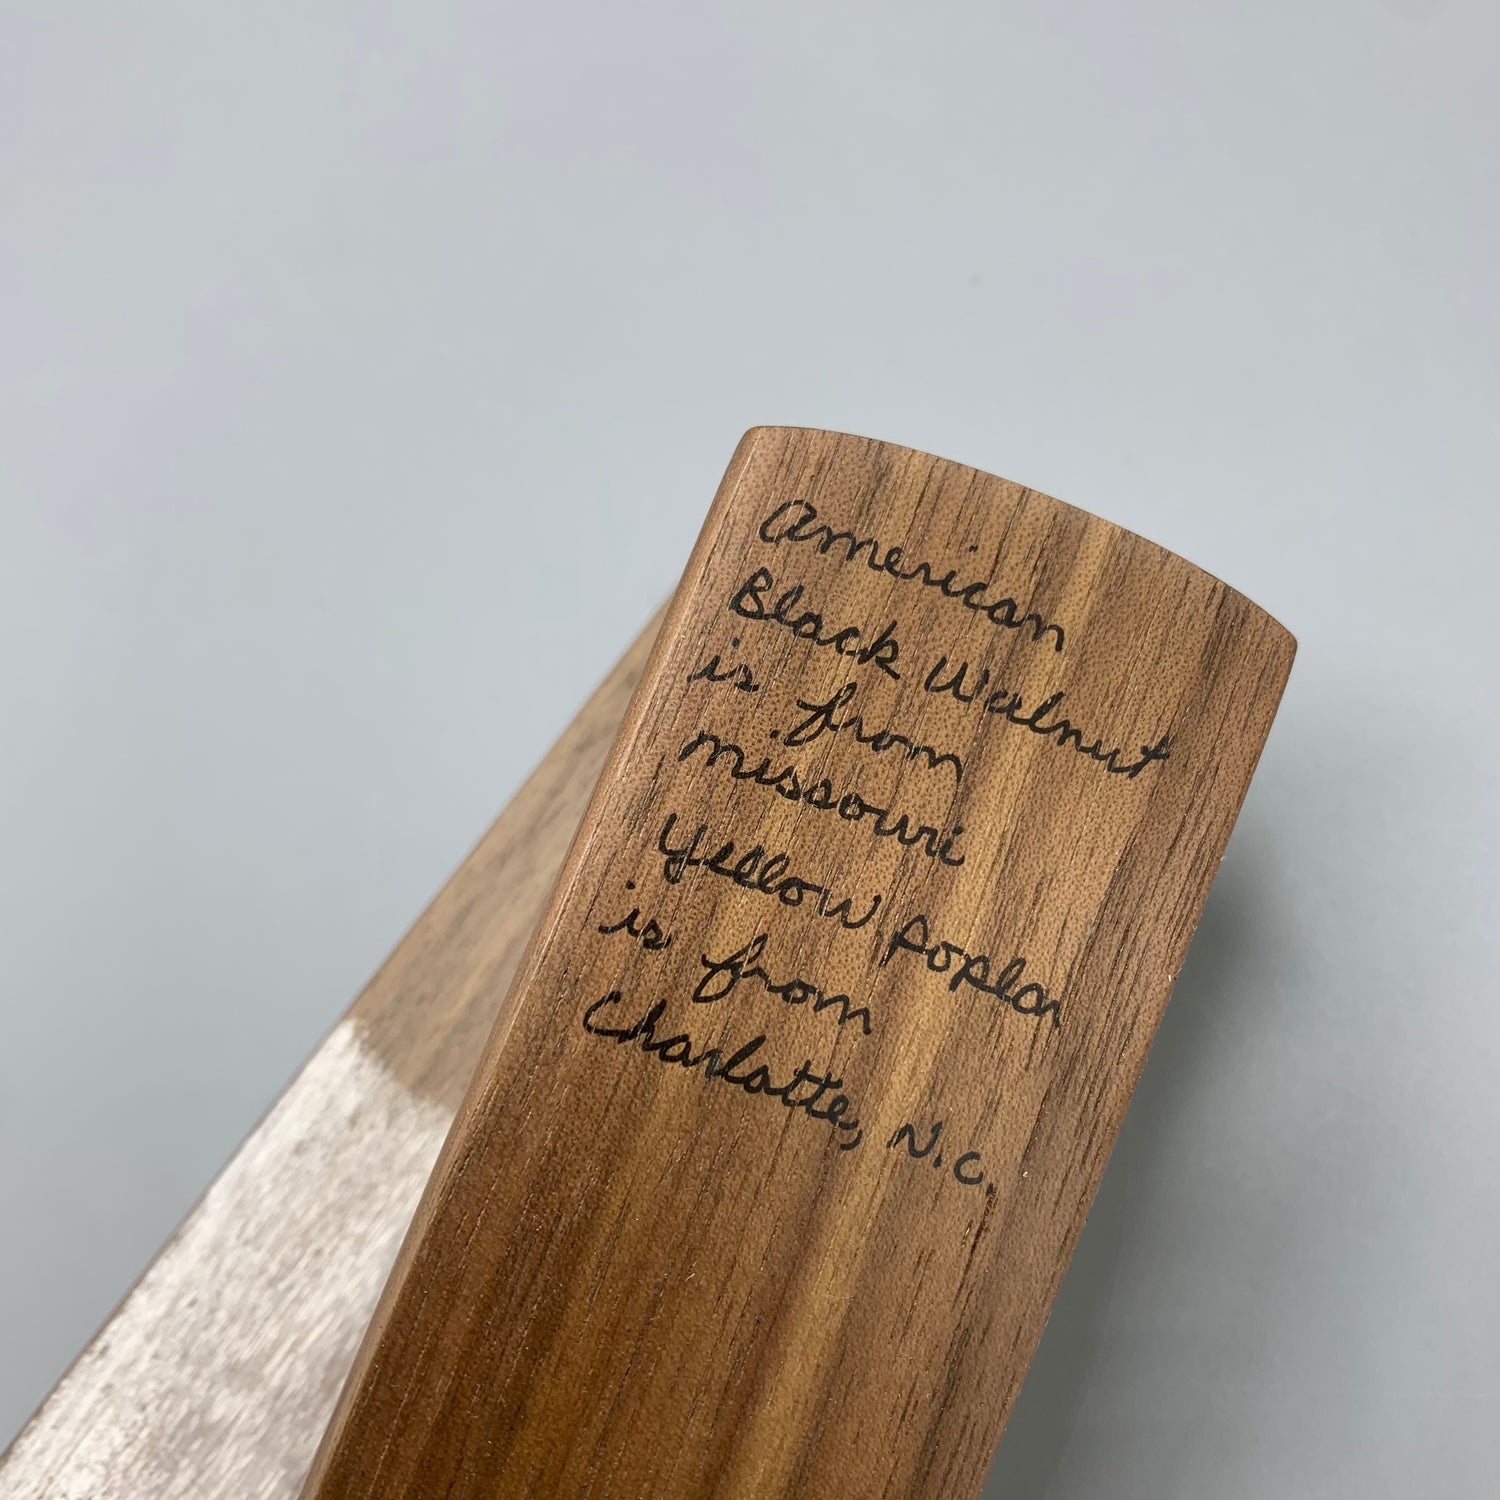 American
Black Walnut
is from
missouri
Yellow poplar
is from
Charlotte, N.C.